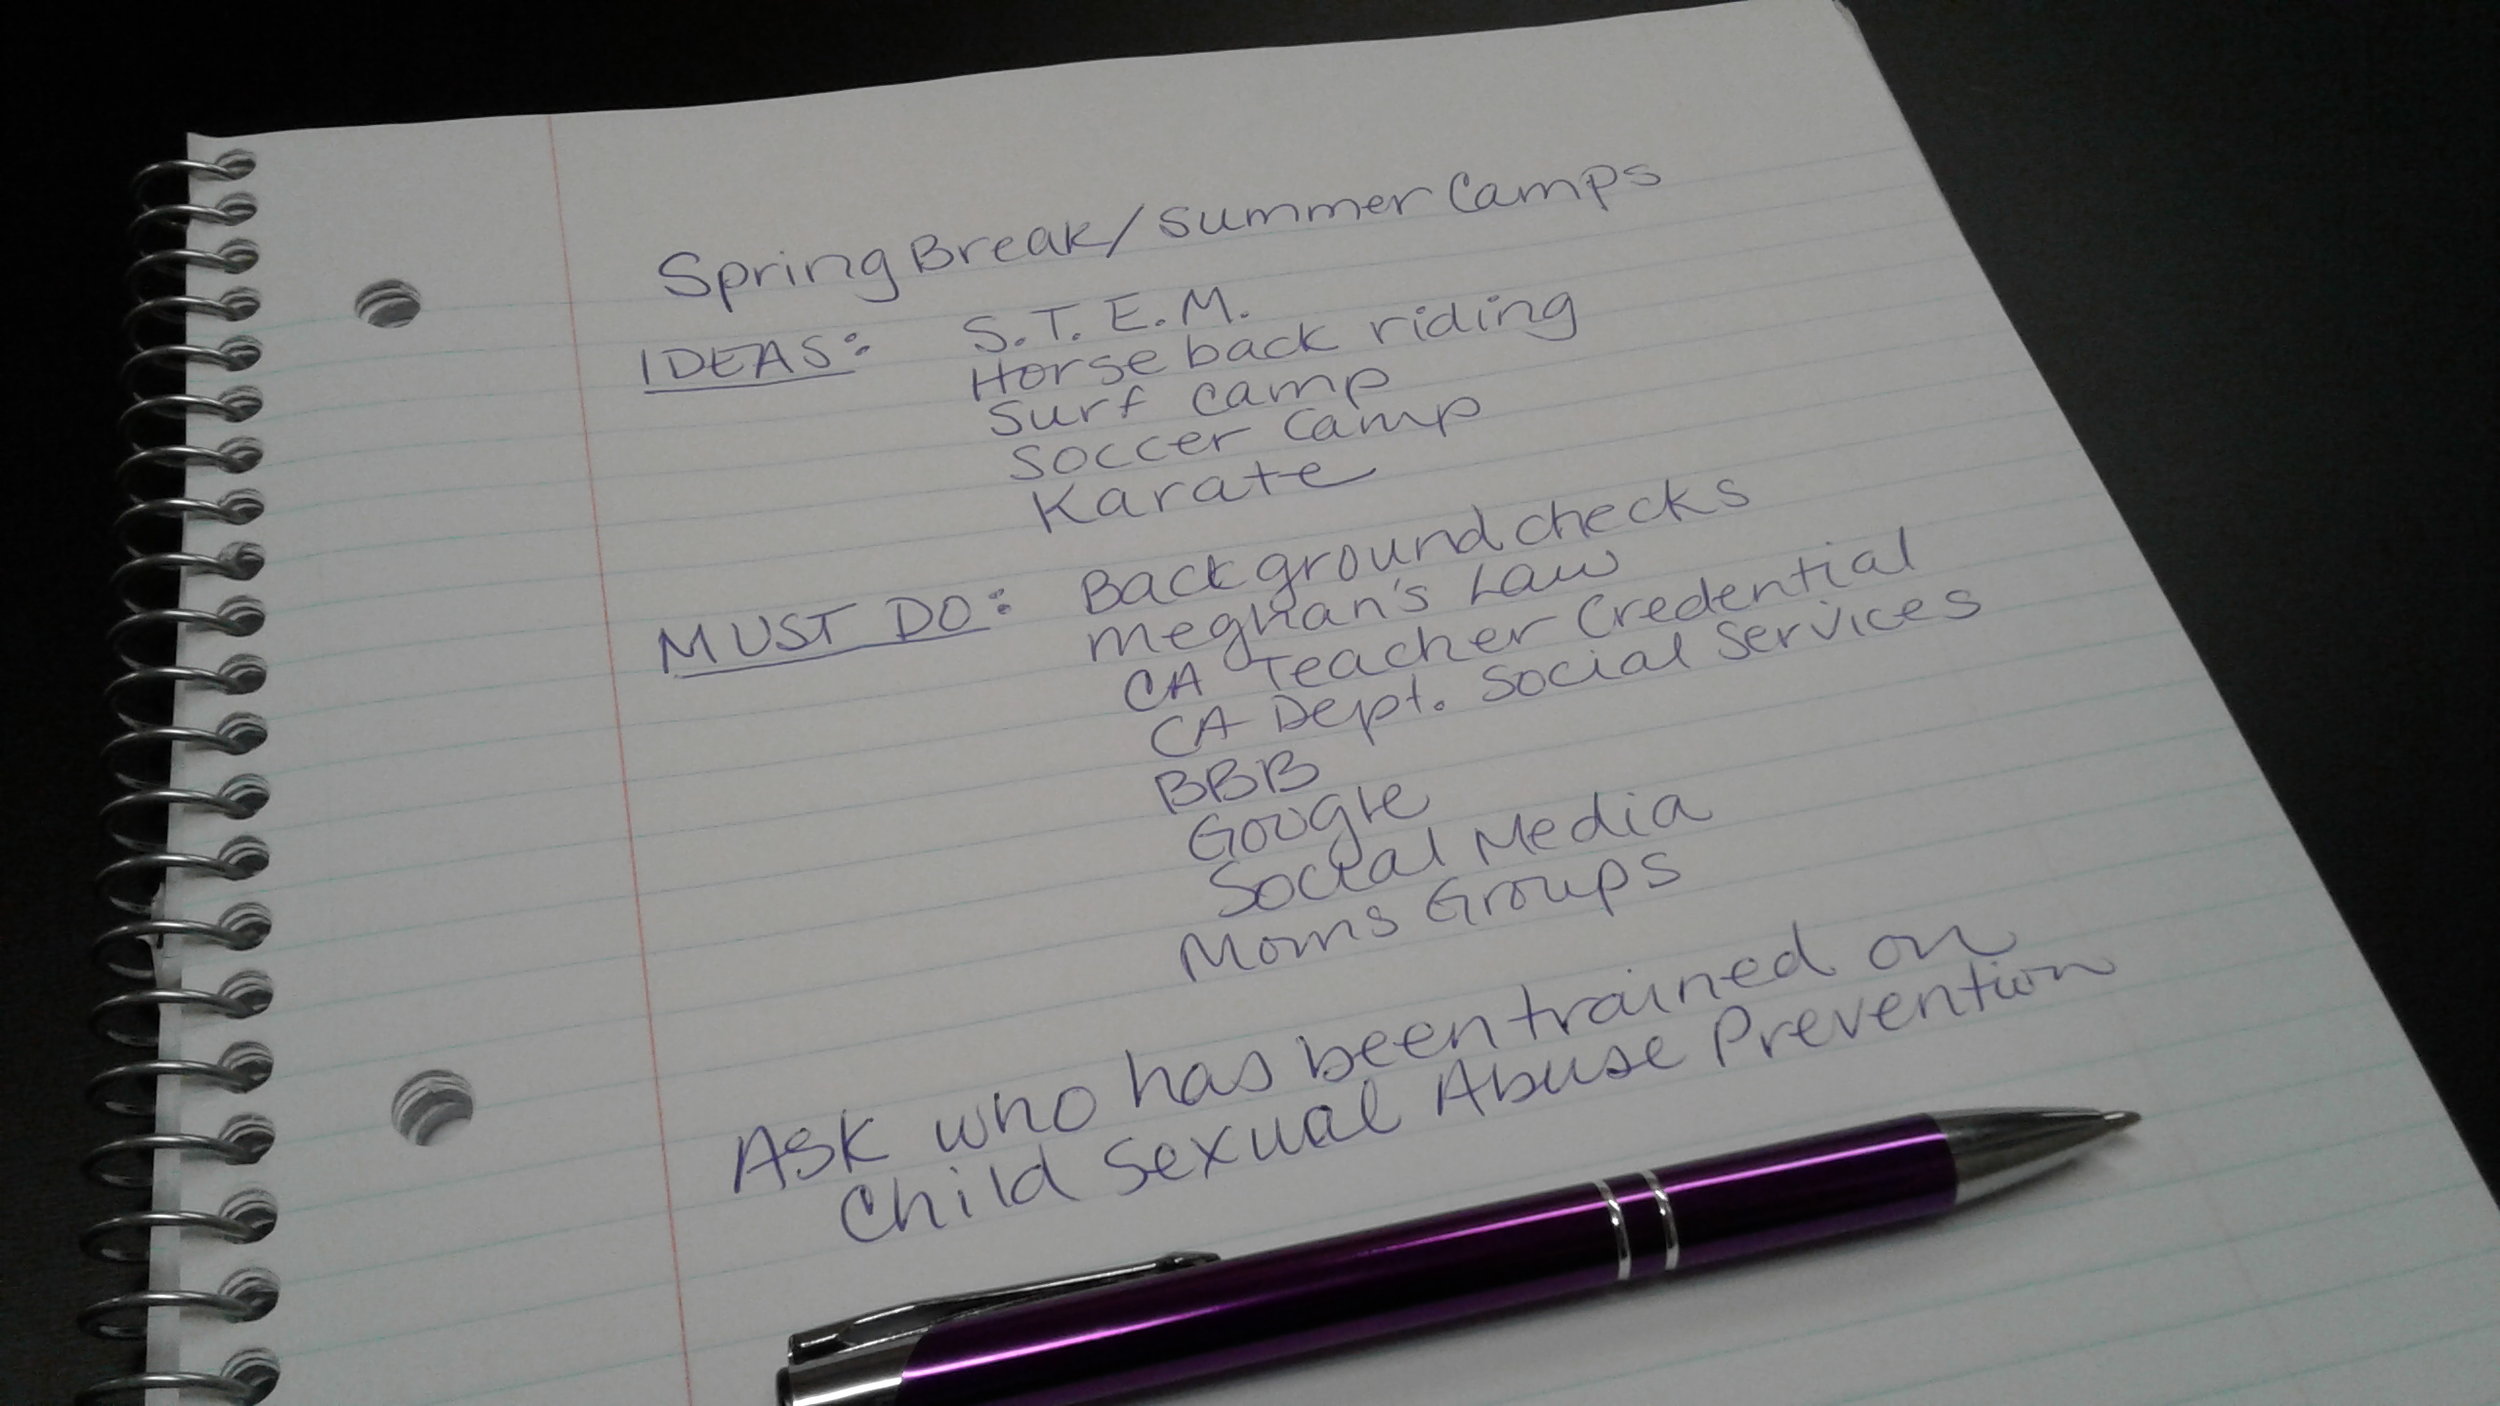 Spring Break/Summer Camps
IDEAS: S.T.E.M.
Horse back riding
Surf camp
Soccer Camp
Karate
MUST DO: Background checks
Meghan's Law
CA Teacher Credential
CA Dept. Social Services
BBB
Google
Social Media
Moms Groups
Ask who has been trained on
Child Sexual Abuse Prevention